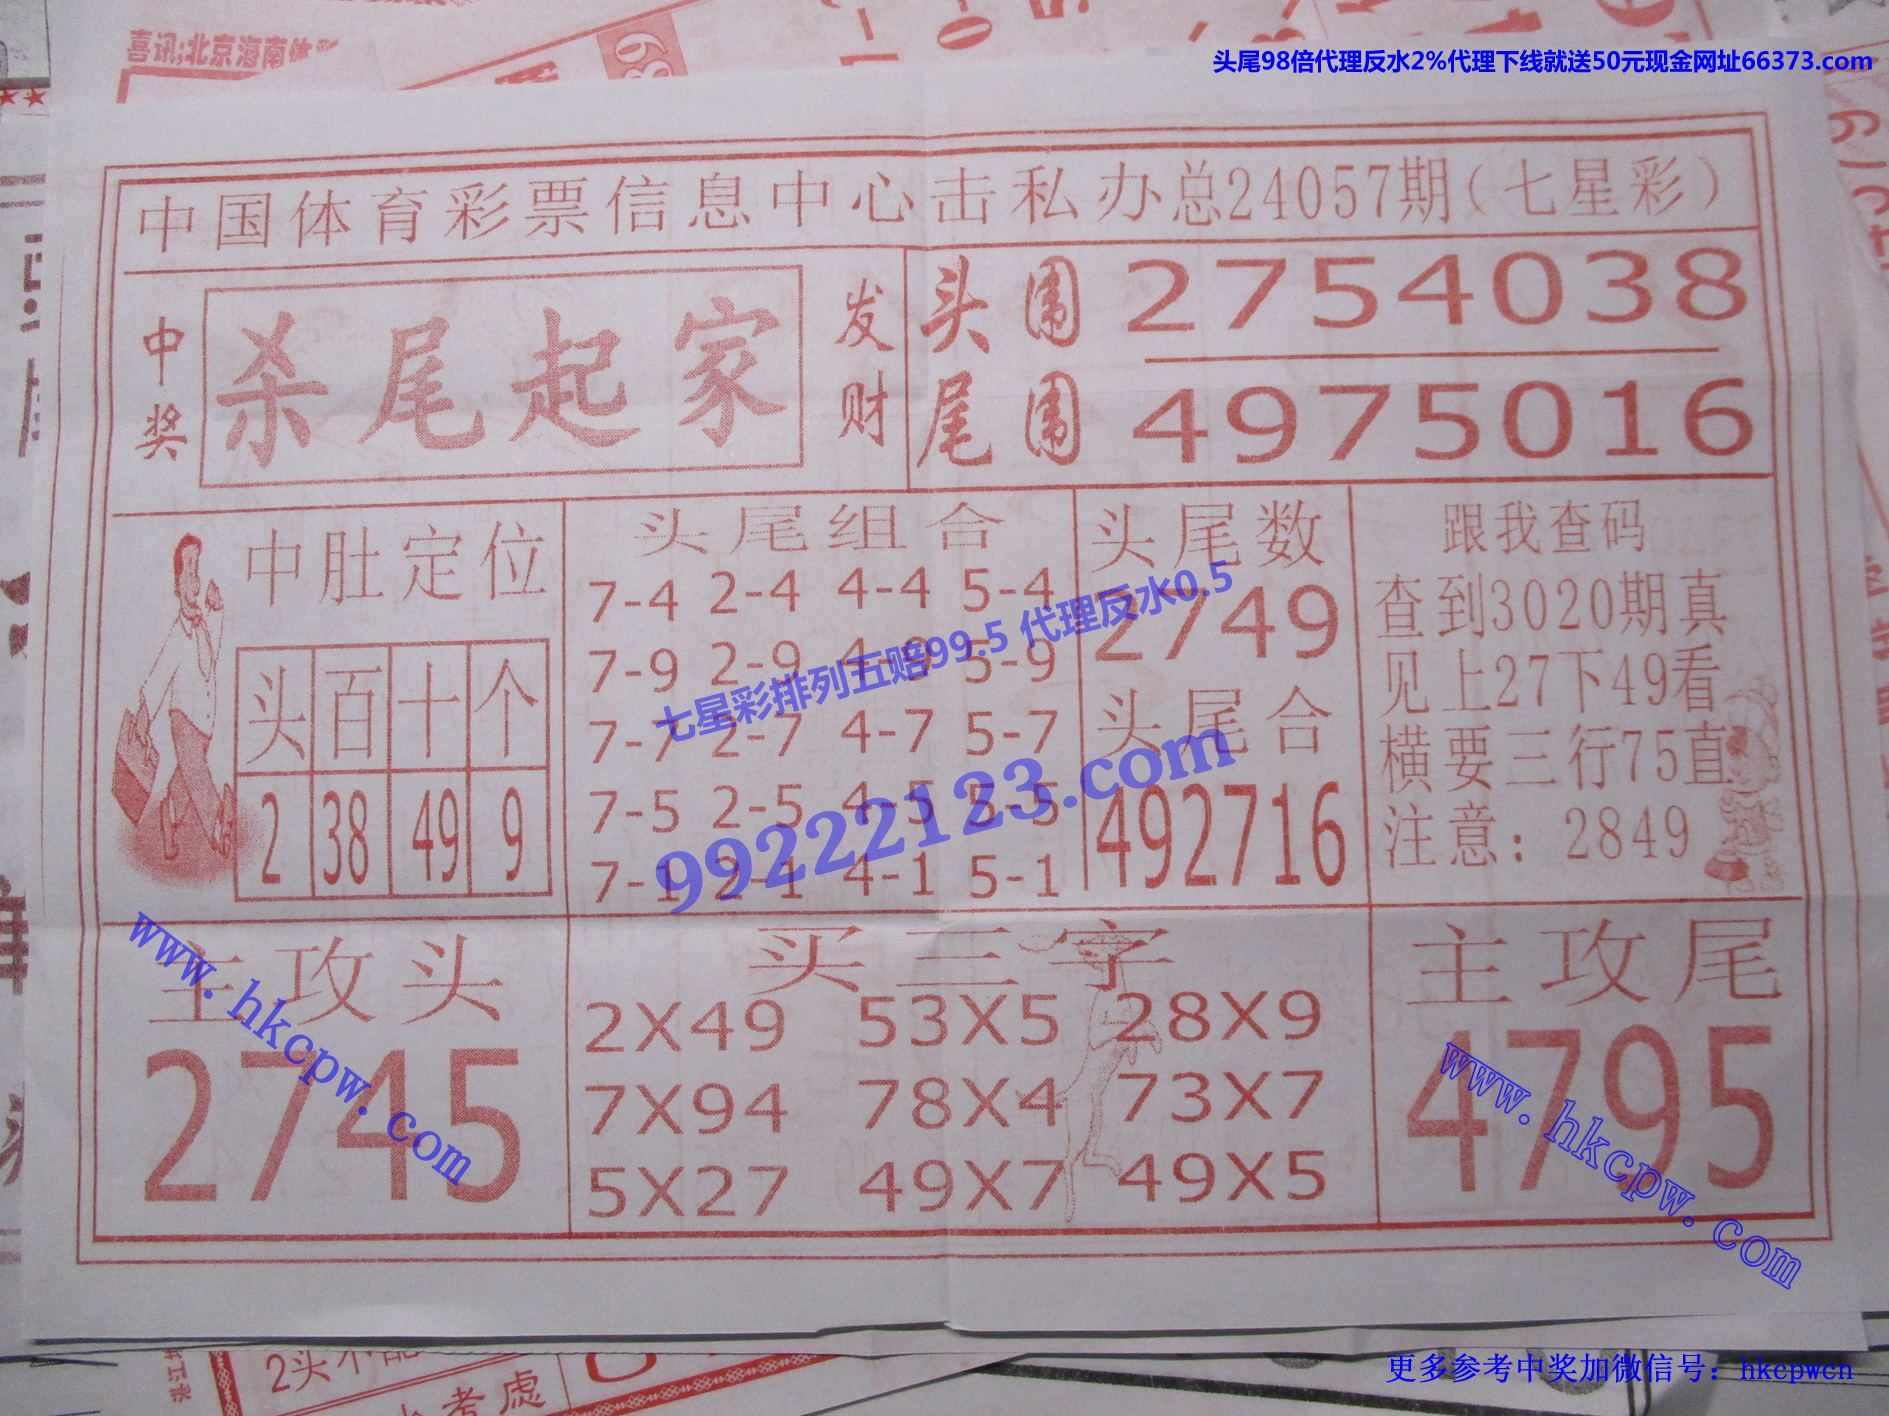 喜讯;北京海南体
头尾98倍代理反水2%代理下线就送50元现金网址66373.com
中国体育彩票信息中心击私办总24057期(七星彩)
中奖
杀尾起家
发财
头围 2754038
尾围 4975016
中肚定位
头 百 十 个
2 38 49 9
头尾组合
7-4 2-4 4-4 5-4
7-9 2-9 4-9 5-9
7-7 2-7 4-7 5-7
7-5 2-5 4-5 5-5
7-1 2-1 4-1 5-1
头尾数
2749
头尾合
492716
跟我查码
查到3020期真
见上27下49看
横要三行75直
注意：2849
七星彩排列五赔99.5 代理反水0.5
99222123.com
主攻头
2745
www.hkcpw.com
买三字
2X49 53X5 28X9
7X94 78X4 73X7
5X27 49X7 49X5
主攻尾
4795
www.hkcpw.com
2头不
考虑
更多参考中奖加微信号：hkcpwcn